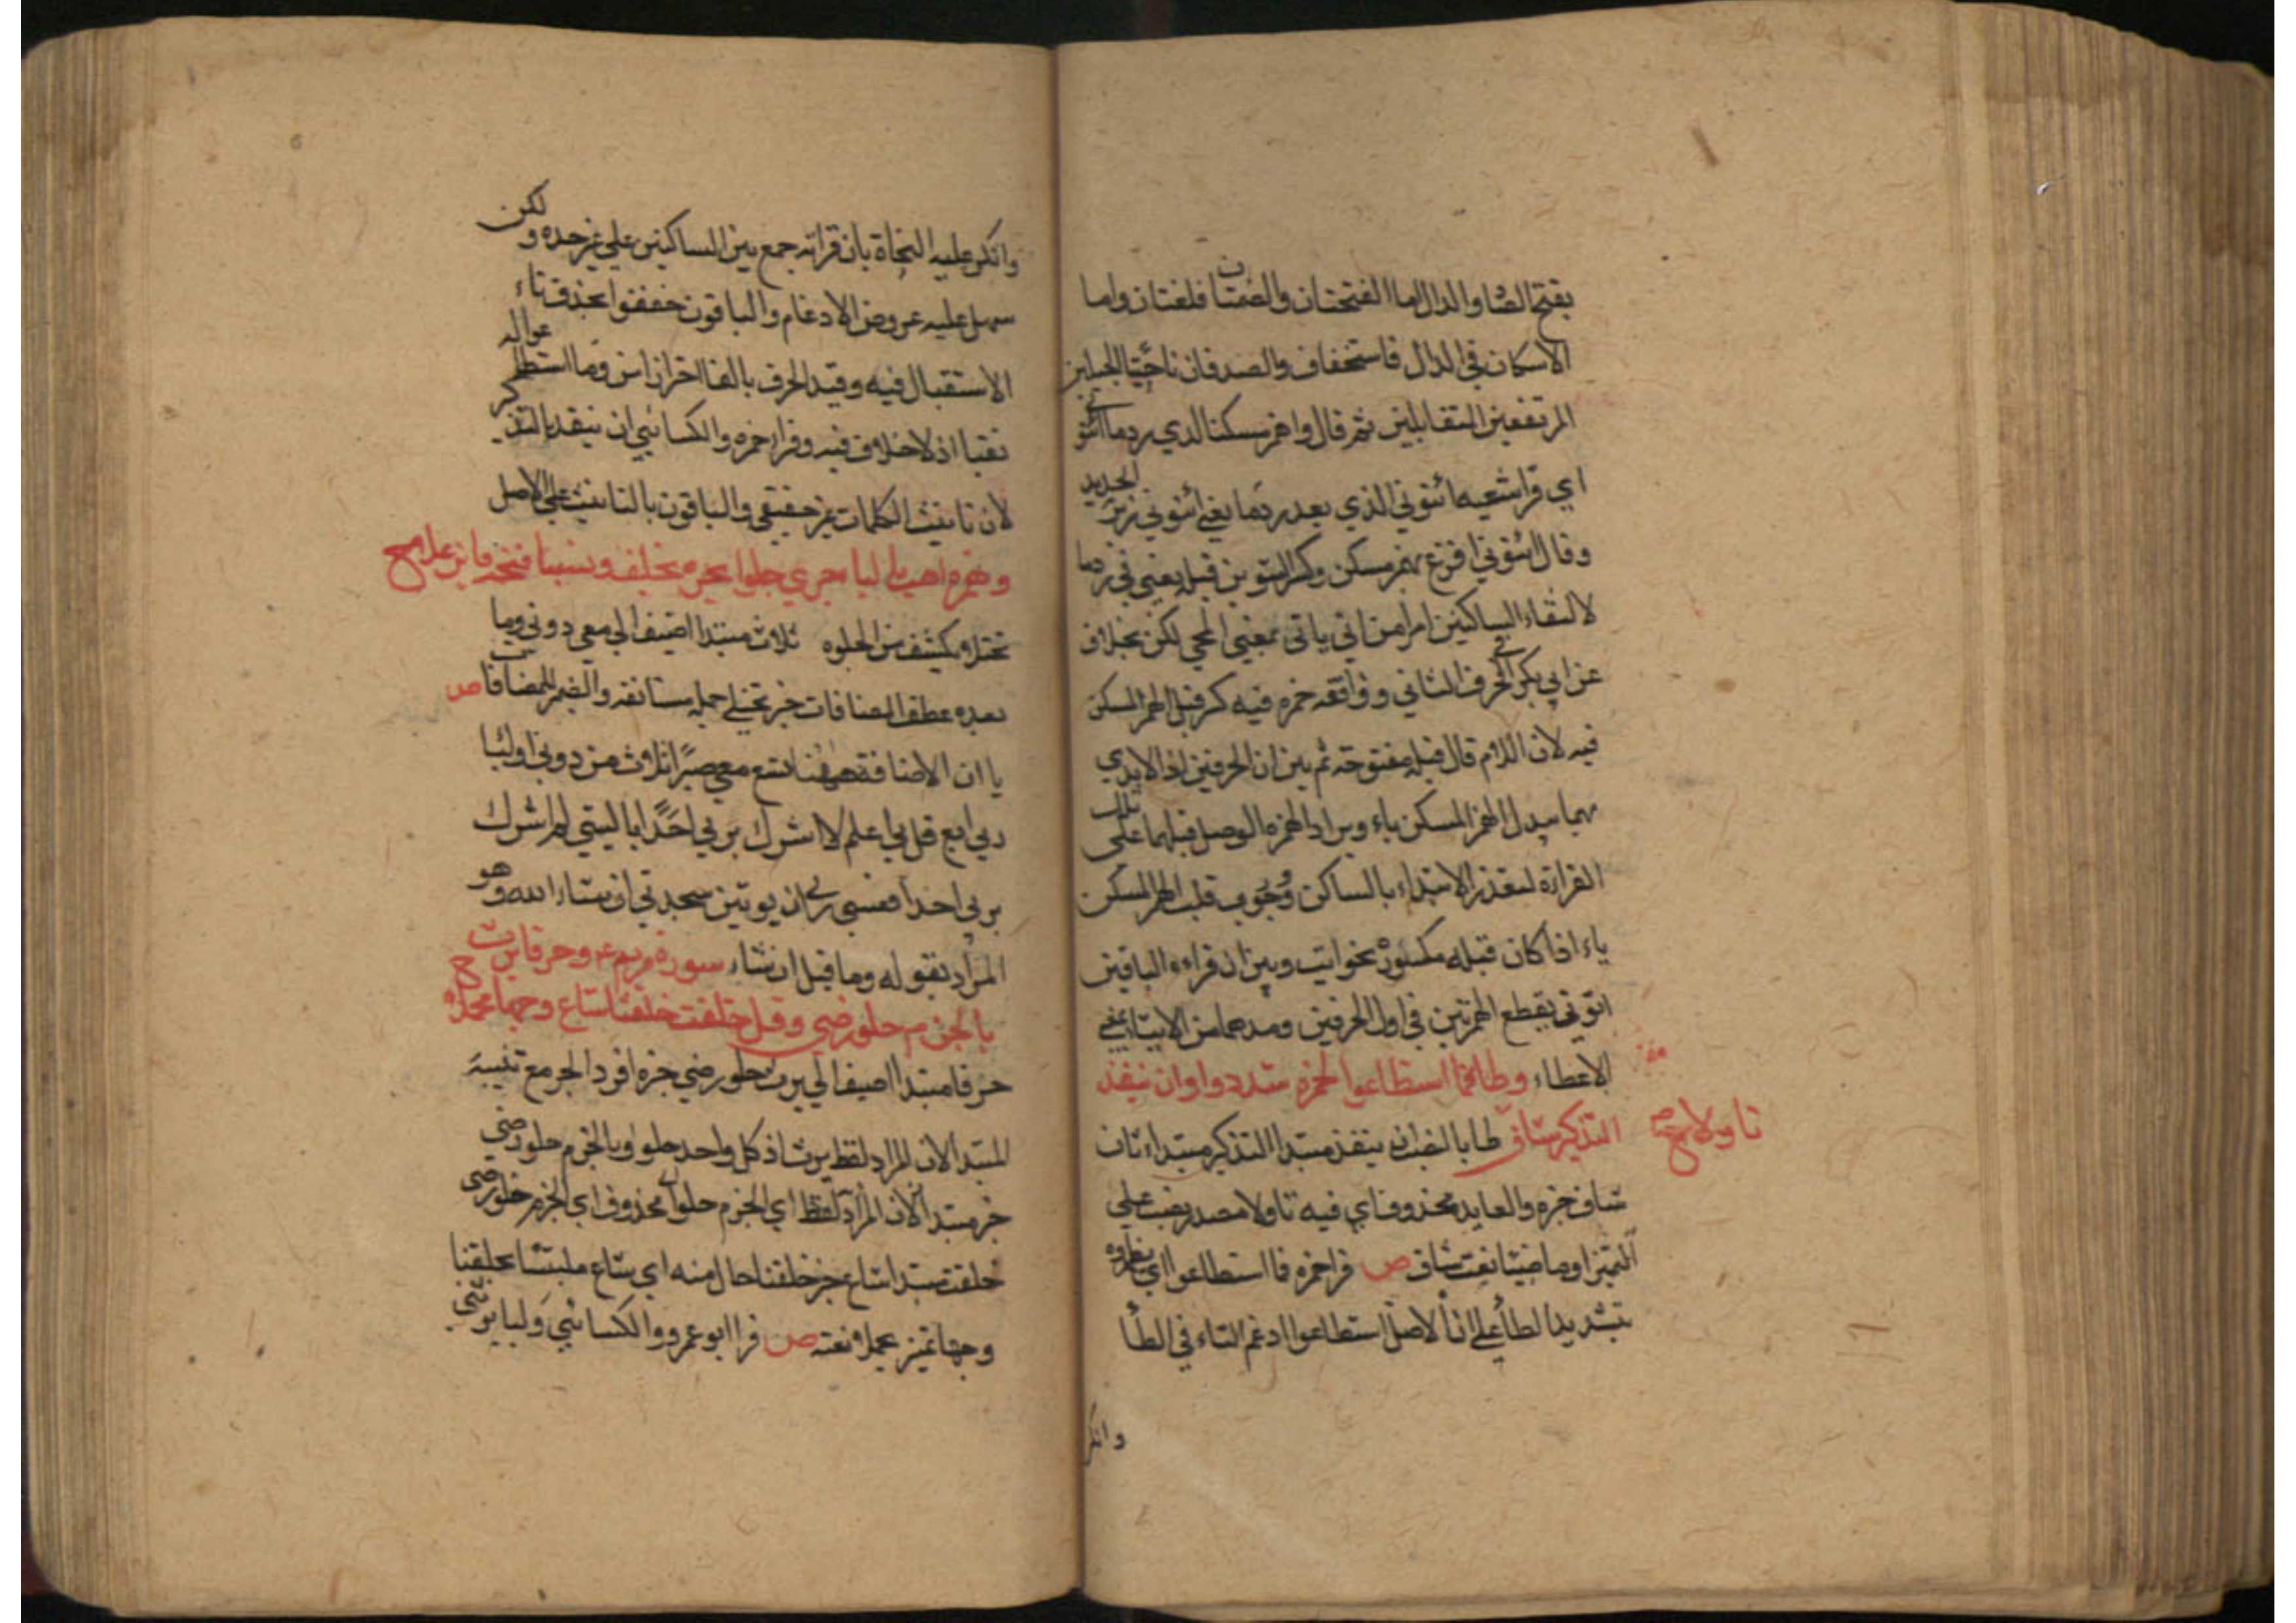 بفتح الصاد والدال اما الفتحتان والضمتان فلغتان واما
الاسكان في الدال فاستخفاف والصدفان ناحيتا الجبلين
المرتفعين المتقابلين ثم قال واهمز مسكنا لدي ردما ائتوني
اي قرا شعبه ائتوني الذي بعد ردما يعني ائتوني زبر الحديد
وقال ائتوني افرغ بهمز مسكن وكسر التنوين قبله يعني في ردما
لالتقاء الساكنين امرا من اتي ياتي بمعني المجي لكن بخلاف
عن ابي بكر في الحرف الثاني ووافقه حمزه فيه كسر قبل الهمز المسكن
فيه لان اللام قال قبله مفتوحة ثم بين ان الحرفين اذا الابدي
بهما يبدل الهمز المسكن ياء ويزاد الهمزه الوصل قبلهما علي تلك
القراءة لتعذر الابتداء بالساكن ووجوب قلب الهمز المسكن
ياء اذا كان قبله مكسور نحو ايت وبين ان قراءه الباقين
اتوني بقطع الهمزتين في اول الحرفين ومدهما من الايتاء بمعني
الاعطاء وطا فما اسطاعوا لحمزه شددوا وان ينفد
التذكير شاف تاولا طا بالنصب ان ينفد مبتدا التذكير مبتداء ثان
شاف خبره والعايد محذوف اي فيه تاولا مصدر نصب علي
التميز او ماضيا نعت شاف ص قرا حمزه فما اسطاعوا اي يظهروه
بتشديد الطا علي ان الاصل استطاعوا ادغم التاء في الطا
وانكر
وانكر عليه النحاة بان قراته جمع بين الساكنين علي غير حده ولكن
سهل عليه عروض الادغام والباقون خففوا بحذف تاء
الاستقبال فيه وقيد الحرف بالفا احترازا من وما استطاعوا له
نقبا اذ لا خلاف فيه وقرا حمزه والكسائي ان ينفد بالتذكير
لان تانيث الكلمات غير حقيقي والباقون بالتانيث علي الاصل
تختلا وتكشف من الجلوه ثلاث مبتدا اضيف الي معي دوني وما
بعده عطف المضافات خبر تجتلي جمله مستانفه والضمير للمضافات ص
يا ان الاضافة ههنا تسع معي صبرا ثلاث من دوني اوليا
ربي اربع قل ربي اعلم لا اشرك بربي احدا يا ليتني لم اشرك
بربي احدا فعسي ربي ان يوتين ستجدني ان شاء الله وهو
المراد بقوله وما قبل ان شاء سورة مريم ع وحرفا يرث
بالجزم حلو رضي وقل خلقت خلقنا شاع وجها مجملا ح
حرفا مبتدا اضيف الي يرث حلو رضي خبره افرد الخبر مع تثنية
المبتدا لان المراد لفظ يرث اذ كل واحد حلو او بالجزم حلو رضي
خبر مبتدا لان المراد لفظا اي الجزم حلو او محذوف اي الجزم حلو رضي
خلقت مبتدا شاع خبر خلقنا حال منه اي شاع ملتبسا بخلقنا
وجها تميز مجملا نعته ص قرا ابو عمرو والكسائي وليا يرثني